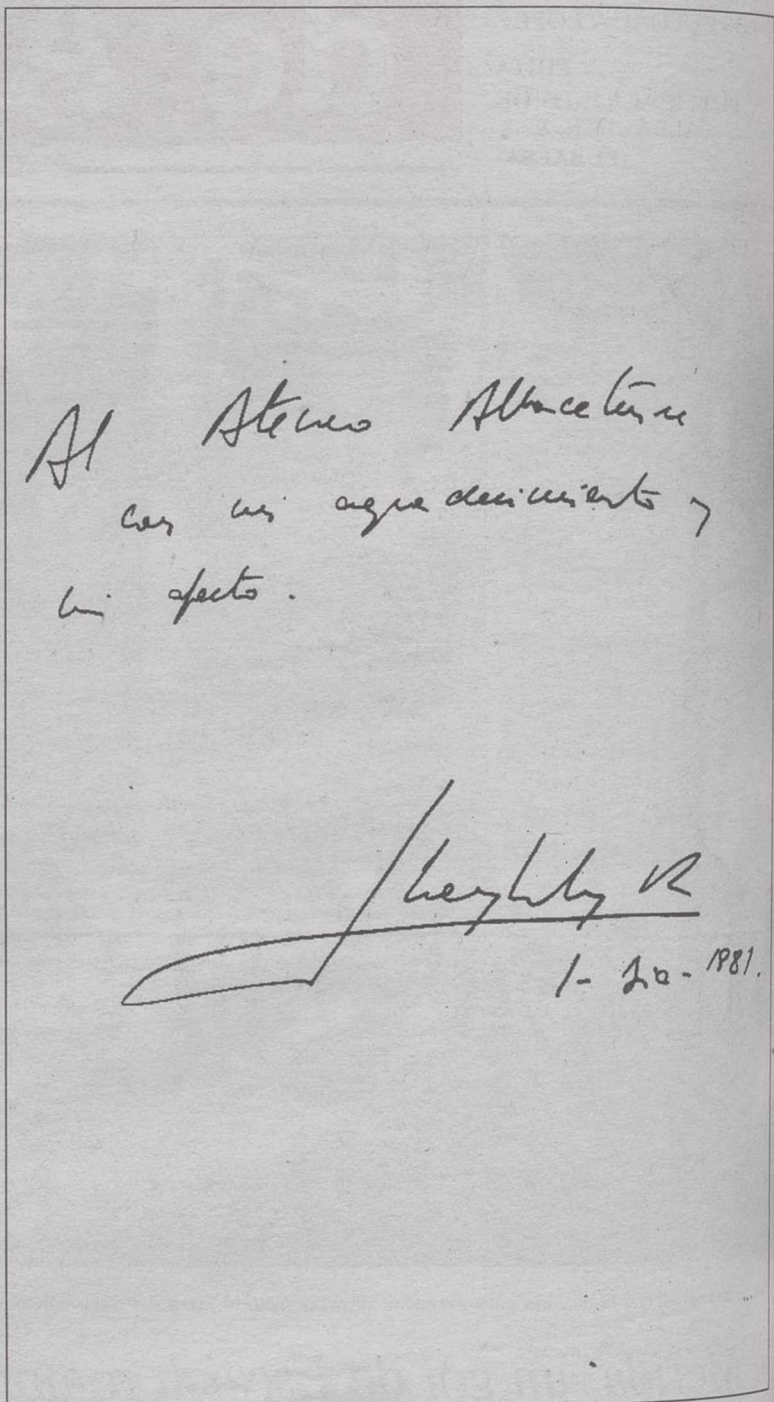 Al Ateneo Albacetense
con mi agradecimiento y
mi afecto.
1- Dic- 1981.